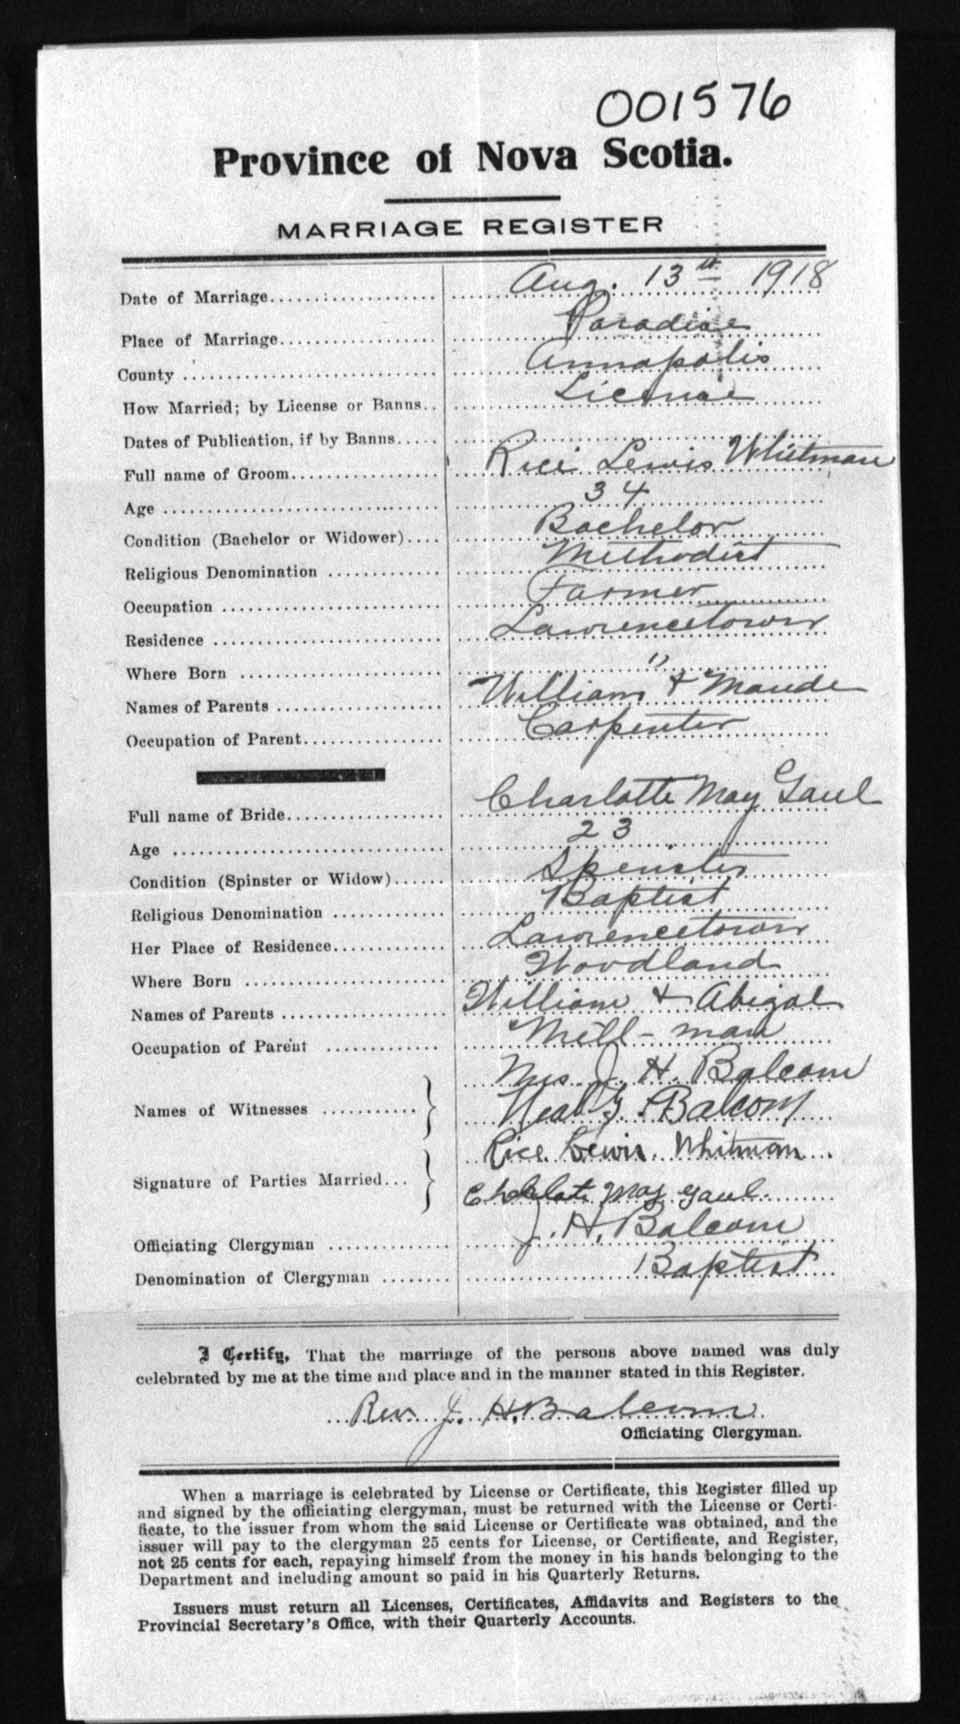 001576
Province of Nova Scotia.
MARRIAGE REGISTER
Date of Marriage Aug. 13th 1918
Place of Marriage Paradise
County Annapolis
How Married; by License or Banns License
Dates of Publication, if by Banns
Full name of Groom Rice Lewis Whitman
Age 34
Condition (Bachelor or Widower) Bachelor
Religious Denomination Methodist
Occupation Farmer
Residence Lawrencetown
Where Born "
Names of Parents William & Maude
Occupation of Parent Carpenter
Full name of Bride Charlotte May Gaul
Age 23
Condition (Spinster or Widow) Spinster
Religious Denomination Baptist
Her Place of Residence Lawrencetown
Where Born Woodland
Names of Parents William & Abigal
Occupation of Parent Mill-man
Mrs J. H. Balcom
Names of Witnesses Neal G. Balcom
Rice Lewis Whitman
Signature of Parties Married May Gaul
Officiating Clergyman J. H. Balcom
Denomination of Clergyman Baptist
I Certify, That the marriage of the persons above named was duly
celebrated by me at the time and place and in the manner stated in this Register.
Rev J. H. Balcom
Officiating Clergyman.
When a marriage is celebrated by License or Certificate, this Register filled up
and signed by the officiating clergyman, must be returned with the License or Certi-
ficate, to the issuer from whom the said License or Certificate was obtained, and the
issuer will pay to the clergyman 25 cents for License, or Certificate, and Register,
not 25 cents for each, repaying himself from the money in his hands belonging to the
Department and including amount so paid in his Quarterly Returns.
Issuers must return all Licenses, Certificates, Affidavits and Registers to the
Provincial Secretary's Office, with their Quarterly Accounts.